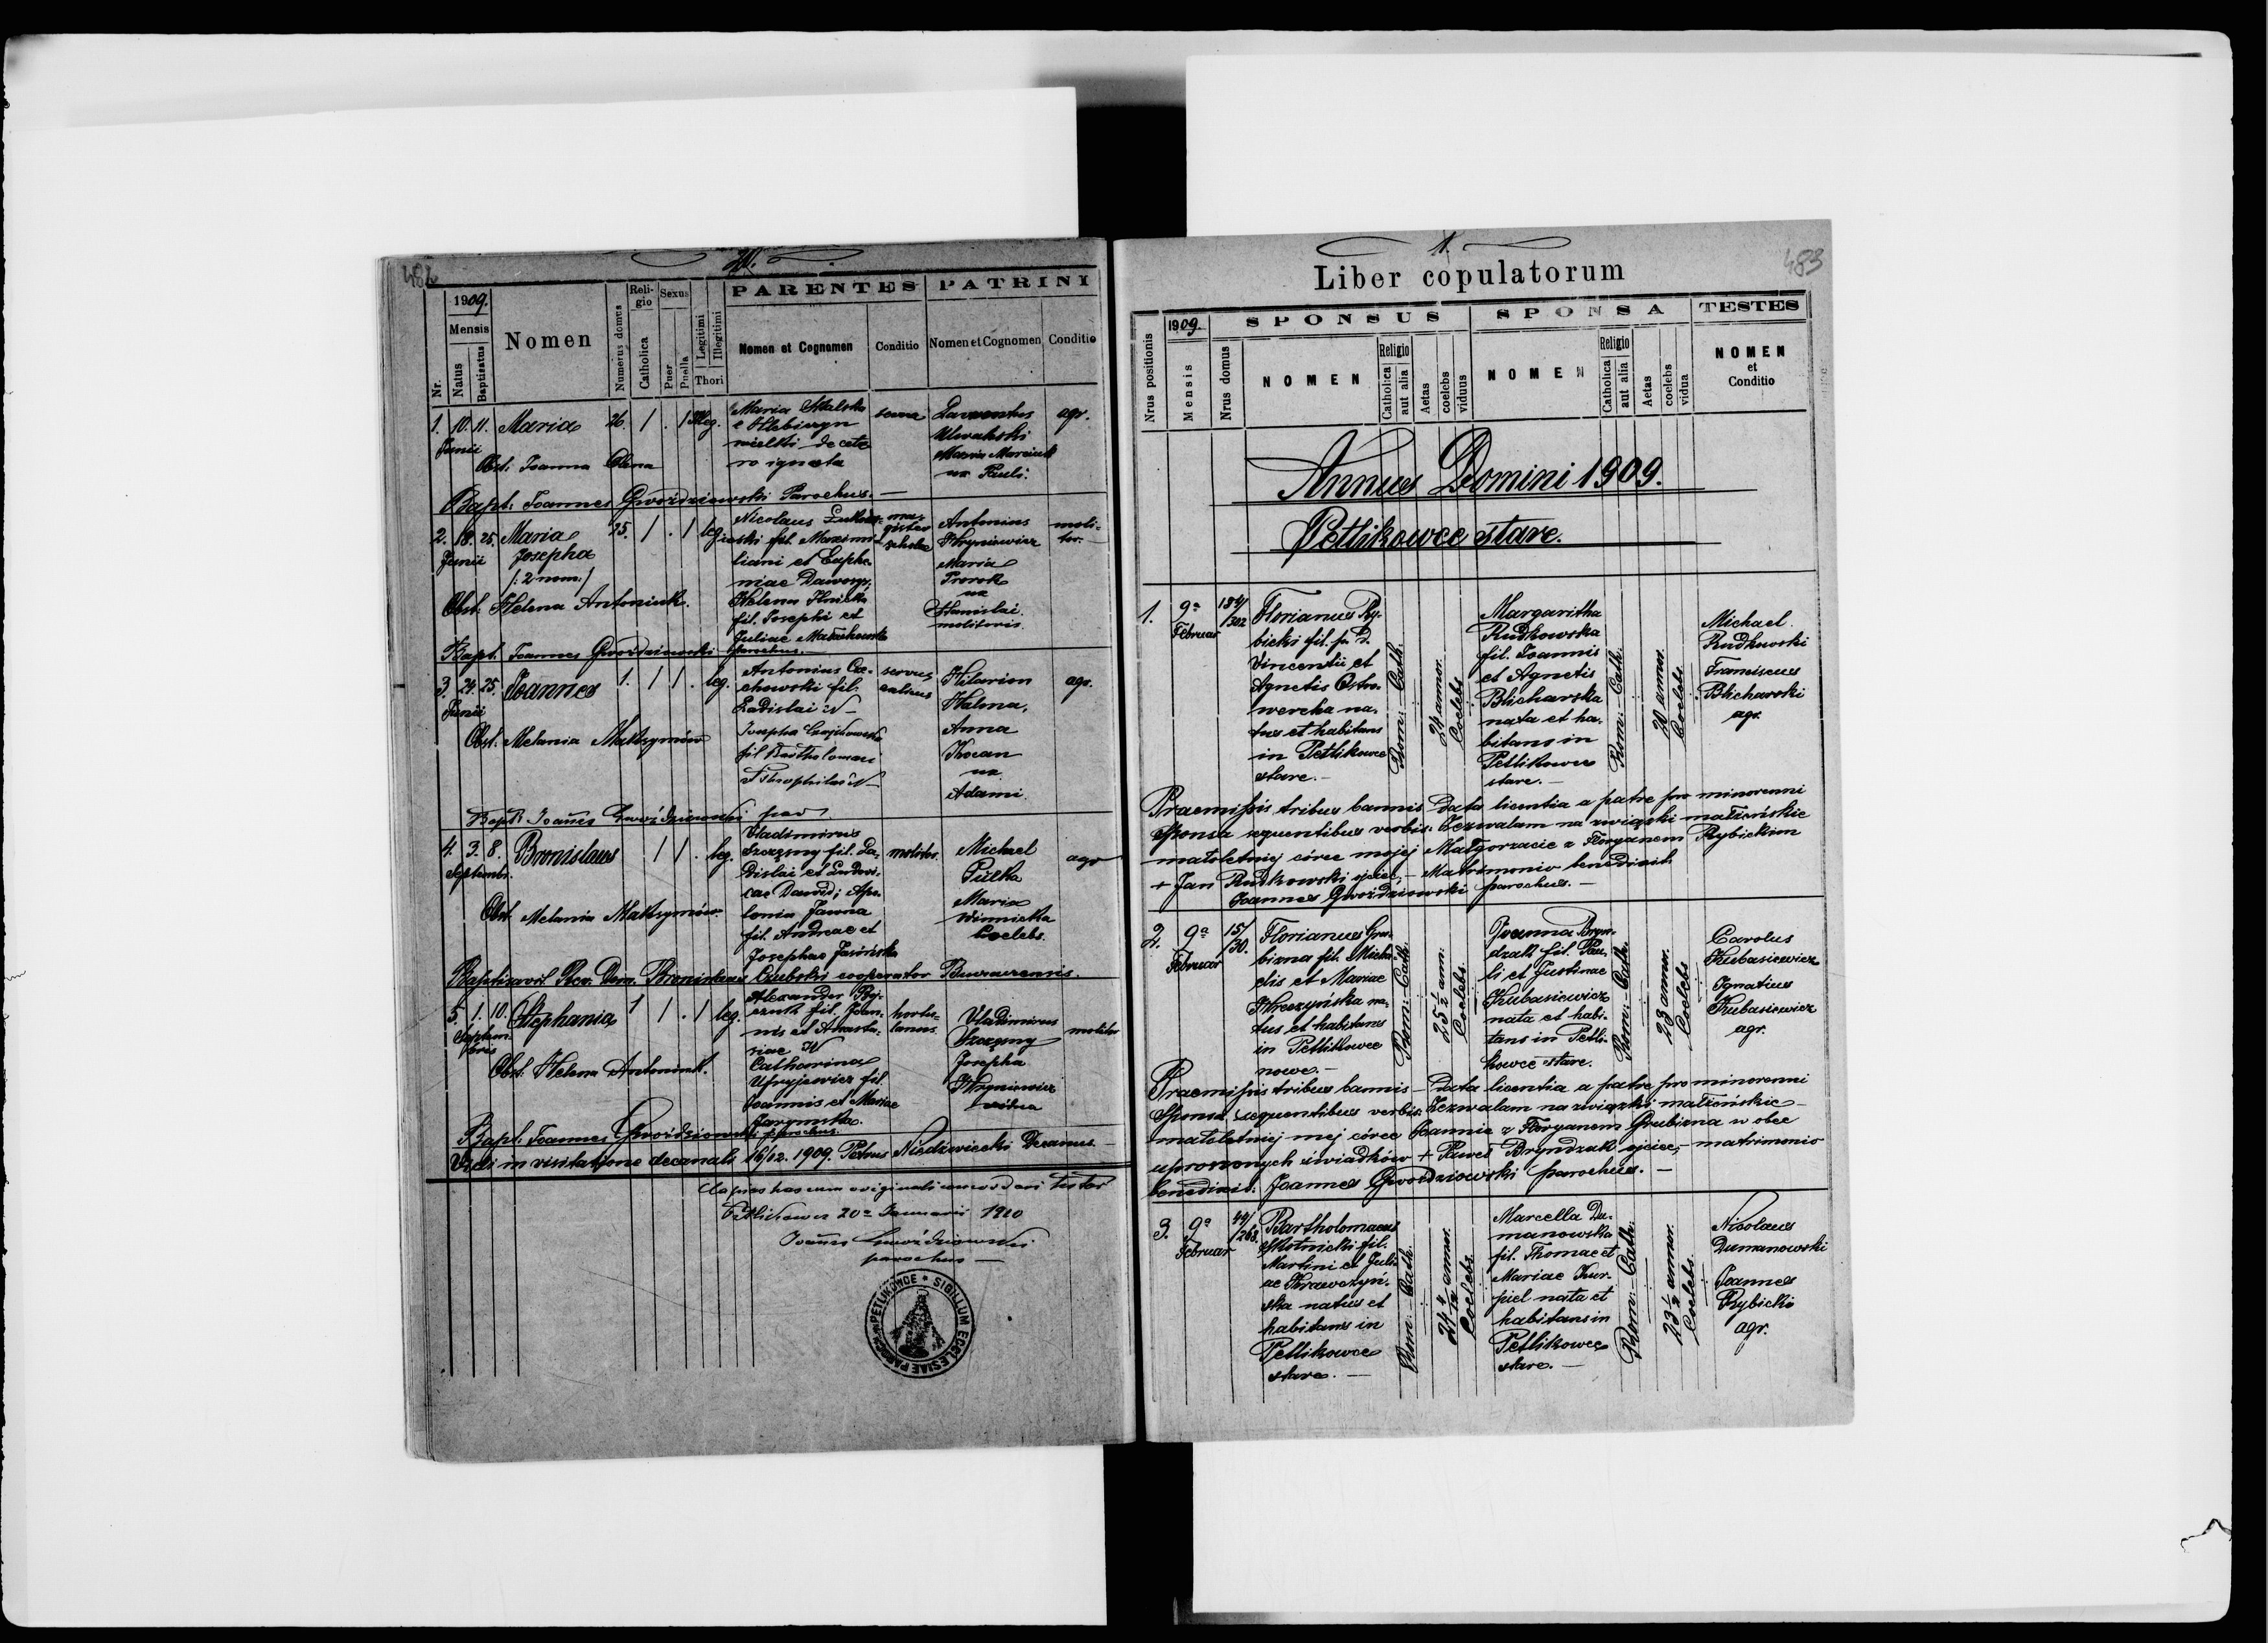 482
1909.
Mensis
Nr.
Natus
Baptisatus
Nomen
Numerus domus
Religio
Catholica
Sexus
Puer
Puella
Legitimi
Illegitimi
Thori
PARENTES
Nomen et Cognomen
Conditio
PATRINI
Nomen et Cognomen
Conditio
1. 10. 11. Maria 26. 1 . 1 illeg.
Junii
Maria Skalska
wielki de cete
ro ignota
agr.
Obst: Joanna
Bapt: Joannes Gwoździowski Parochus.—
2. 18. 25. Maria 25. 1 . 1 leg.
Junii
Josepha
/: 2 nom :/
Nicolaus
fil. Maximi-
liani et Euphe-
miae
Helena
fil. Josephi et
Juliae
magister
scholae
Antonius
Hryniewicz
Maria
Prorok
ux
Stanislai
molitoris.
moli-
tor.
Obst: Helena Antoniuk.
Bapt. Joannes Gwoździowski parochus.—
3. 24. 25. Joannes 1. 1 1 . leg.
Junii
Antonius Cze-
chowski fil.
Ladislai
Josepha
fil Bartholomaei
servus
Hilarion
Halma,
Anna
Kocan
ux
Adami
agr.
Obst. Melania Maksymów
Bapt: Joañes Gwoździowski par
4. 3. 8. Bronislaus 1 1 . leg.
Septembr.
Vladimirus
Szczęsny fil. La-
dislai et Ludovi-
cae Dawid; Apo-
lonia Jawna
fil. Andreae et
Josephae Jasińska
molitor.
Michael
Pulka
Maria
Winnicka
Coelebs.
agr
Obst. Melania Maksymów.
Baptisavit Rev. Dom. Bronislaus Czubski cooperator
5. 1. 10. Stephania 1 1 . 1 leg.
Septem-
bris
Alexander
fil. Joan-
nis et Anasta-
siae
Catharina
fil.
Joannis et Mariae
hortu-
lanus.
Vladimirus
Szczęsny
Josepha
Hryniewicz
vidua
molitor
Obst: Helena Antoniuk.
Bapt. Joannes Gwoździowski parochus.
Vidi in visitatione decanali 16/12. 1909. Petrus Niedźwiecki Decanus.—
has cum originali testor
20a Januarii 1910
Joañes Gwoździowski
parochus —
SIGILLUM ECCLESIAE PAROCH. PETLIKOWCE
483
1.
Liber copulatorum
Nrus positionis
1909.
Mensis
Nrus domus
SPONSUS
NOMEN
Religio
Catholica
aut alia
Aetas
coelebs
viduus
SPONSA
NOMEN
Religio
Catholica
aut alia
Aetas
coelebs
vidua
TESTES
NOMEN
et
Conditio
Annus Domini 1909.
Petlikowce stare.
1. 9a
Februar
184/302
Florianus Ry-
bicki fil. p. d.
Vincentii et
Agnetis Ostro-
wercha na-
tus et habitans
in Petlikowce
stare.—
Rom:-Cath.
24 annor.
Coelebs
Margaritha
Rudkowska
fil. Joannis
et Agnetis
Blicharska
nata et ha-
bitans in
Petlikowce
stare.—
Rom:-Cath.
20 annor.
Coelebs.
Michael
Rudkowski
Franciscus
Blicharski
agr.
Praemissis tribus bannis – Data licentia a patre pro minorenni
sponsa sequentibus verbis: Zezwalam na związki małżeńskie
małoletniej córce mojej Małgorzacie z Floryanem Rybickim
+ Jan Rudkowski ojciec,– Matrimonio benedixit
Joannes Gwoździowski parochus.—
2. 9a
Februar
15/30.
Florianus Gru-
bizna fil. Micha
elis et Mariae
Kreczyńska na-
tus et habitans
in Petlikowce
nowe.—
Rom:-Cath.
25 1/2 ann:
Coelebs.
Joanna Bryn-
dzak fil. Pau-
li et Justinae
Kubasiewicz
nata et habi-
tans in Petli-
kowce stare.
Rom:-Cath.
23 annor.
Coelebs
Carolus
Kubasiewicz
Ignatius
Kubasiewicz
agr.
Praemissis tribus bannis – Data licentia a patre pro minorenni
Sponsa sequentibus verbis: Zezwalam na związki małżeńskie –
małoletniej mej córce Joannie z Floryanem Grubizna w obec
uproszonych świadków + Paweł Bryndzak ojciec,– matrimonio
benedixit: Joannes Gwoździowski parochus.—
3. 9a
Februar
44/268.
Bartholomaeus
Słotnicki fil.
Martini et Juli-
ae Krawczyń-
ska natus et
habitans in
Petlikowce
stare.—
Rom:-Cath.
24 4/12 annor.
Coelebs.
Marcella Du-
manowska
fil. Thomae et
Mariae Kur-
piel nata et
habitans in
Petlikowce
stare.—
Rom:-Cath.
23 1/2 annor.
Coelebs.
Nicolaus
Dumanowski
Joannes
Rybicki
agr.